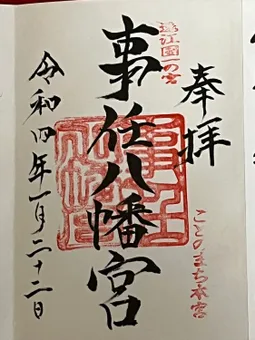 奉拝
遠江国一の宮
事任八幡宮
ことのまち本宮
令和四年一月二十二日